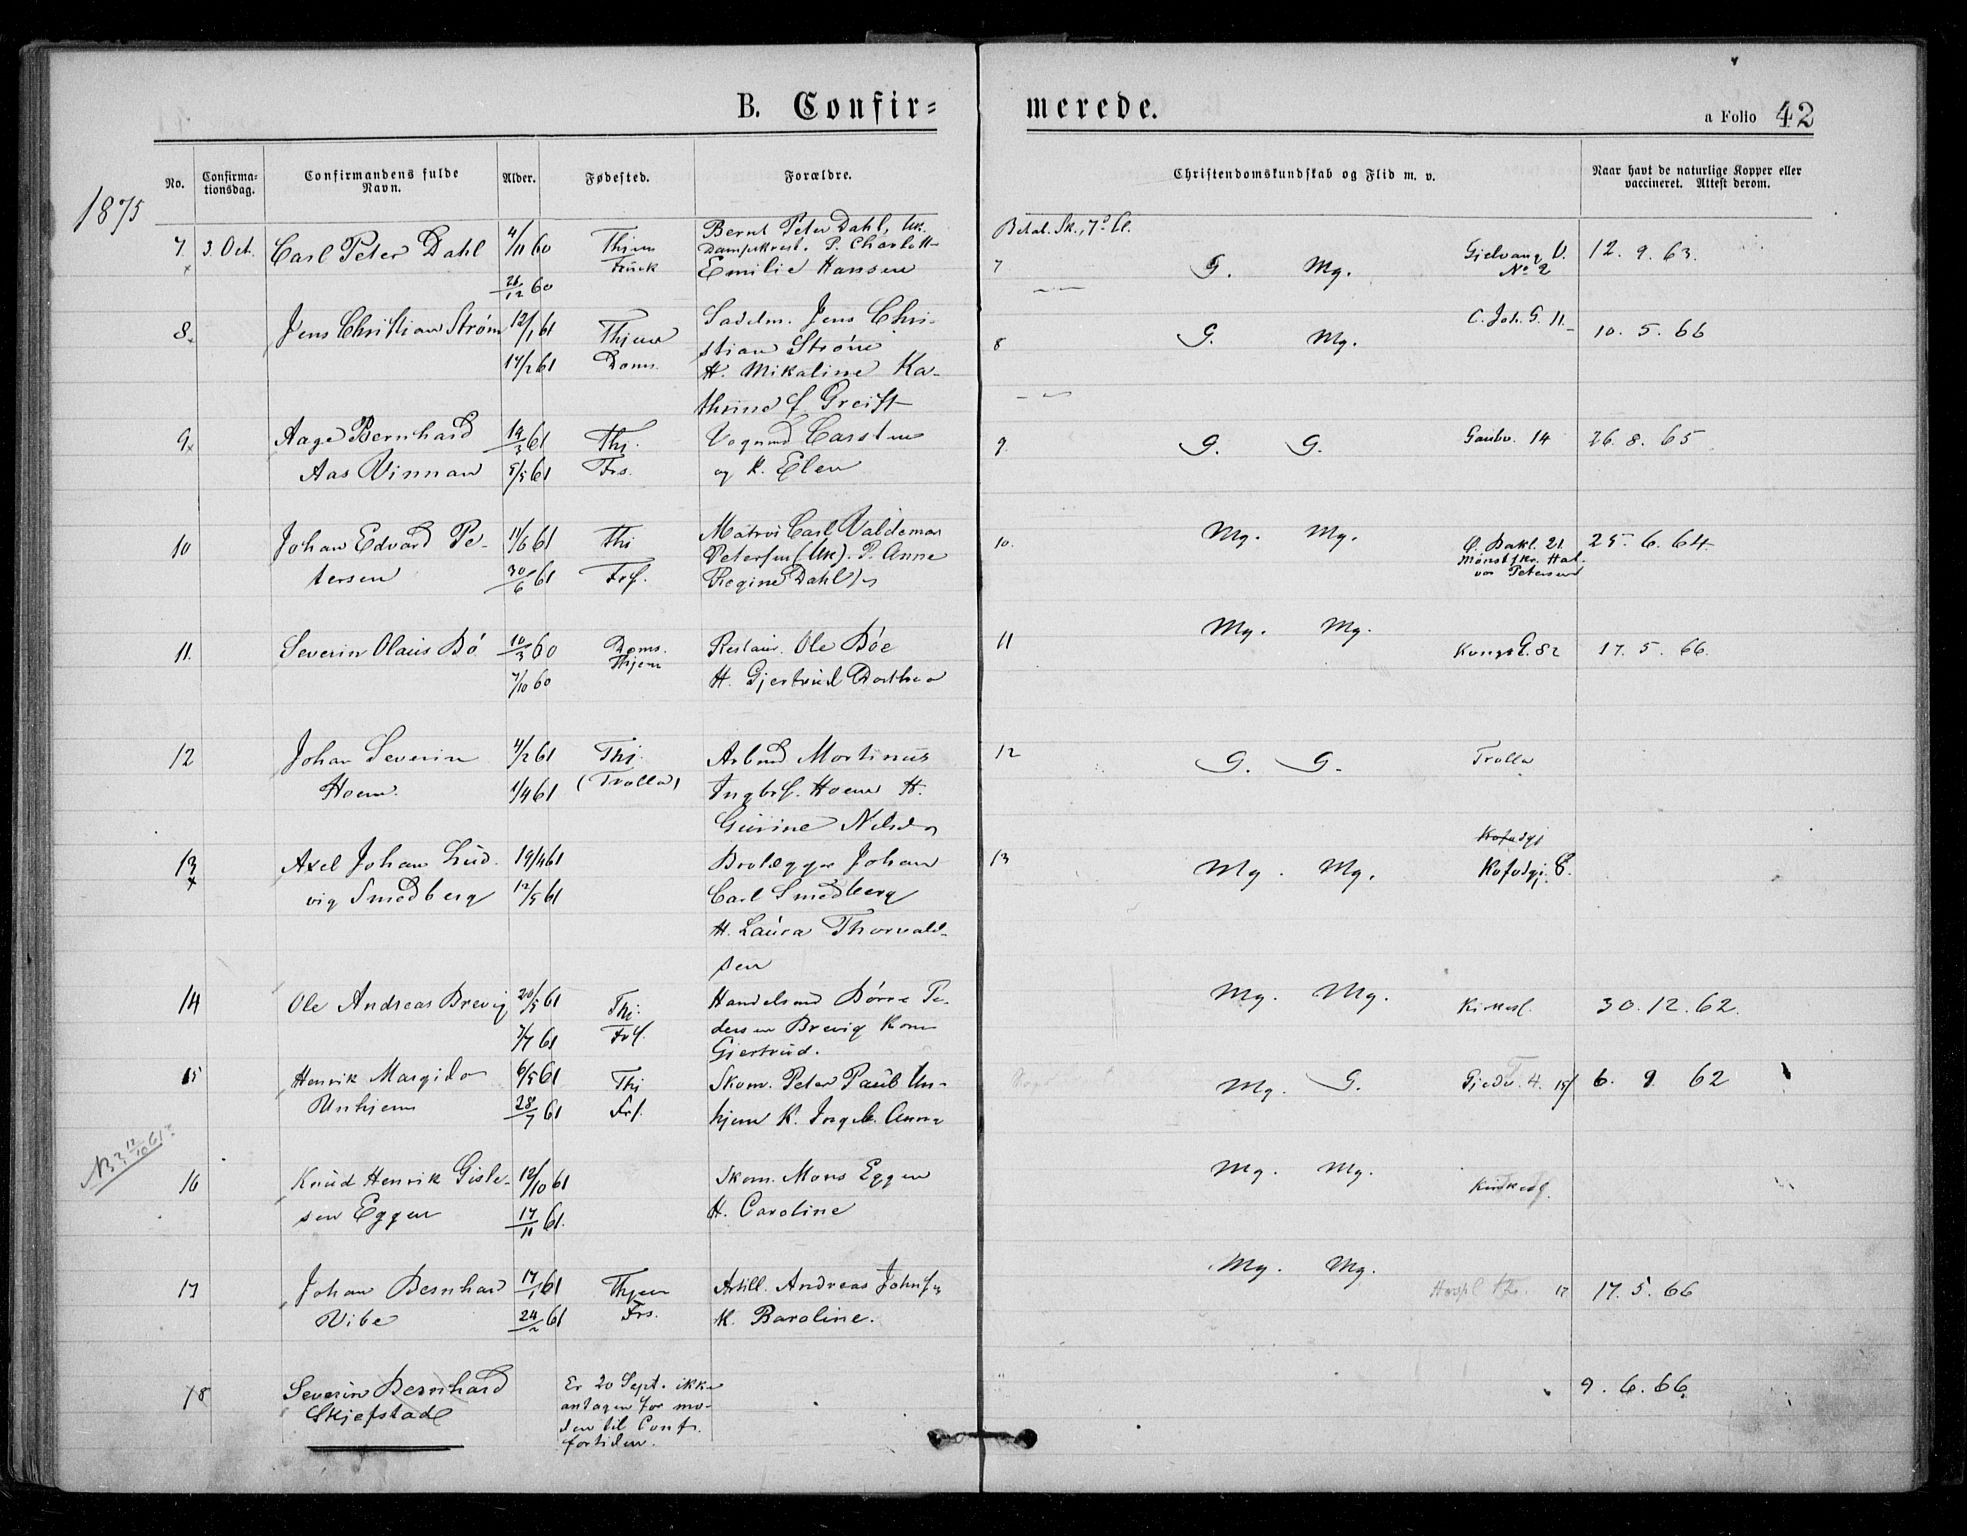 B. Confir= merede.
a Folio 42
No. Confirma-tionsdag. Confirmandens fulde Navn. Alder. Fødested. Forældre. Christendomskundskab og Flid m. v. Naar havt de naturlige Kopper eller vaccineret. Attest derom.
1875
Betal. Sk., 7
7 3 Oct. Carl Peter Dahl 4/11 60 Bernt Peter Dahl, Uk.
P. Charlott 7 G. Mg. No 2 12. 9. 63.
26/12 60 Emilie Hansen
8 Jens Christian Strøm 12/1 61 Thjem Sadelm. Jens Chri- 8 G. Mg. C. Joh. G. 11 10. 5. 66
17/2 61 Doms. stian Strøm
H. Mikaline Ka-
thrine f Greift
9 Aage Bernhard 19/3 61 Thj. Carsten 9. G. G. 14 26. 8. 65
Aas Vinnan 5/5 61 Frs. og K. Elen
10 Johan Edvard Pe- 11/6 61 Thj Carl Valdemar 10. Mg. Mg. Ø. Bakl. 21. 25. 6. 64
tersen 30/6 61 Frf. Petersen (Uk). P. Anne
Regine Dahl Petersen
11. Severin Olaus Bö 10/3 60 Doms. Restaur. Ole Böe 11 Mg. Mg. Kongs G. 82 17. 5. 66.
7/10 60 Thjem H. Gjertrud Dorthea
12 Johan Severin 4/2 61 Thj. Arbmd Martinus 12 G. G. Trolla
Hoem. 1/4 61 (Trolla) Ingbrf. Hoem H.
Gurine Nilsd
13 Axel Johan Lud- 19/4 61 Brolægger Johan 13 Mg. Mg. Kofodgj. C.
vig Smedberg 12/5 61 Carl Smedberg
H. Laura Thorvald-
sen
14 Ole Andreas Brevig 20/5 61 Thj. Handelsmd Börre Pe- Mg. Mg. Kirkesl. 30. 12. 62.
7/7 61 Frf. dersen Brevig
Gjertrud.
15 Henrik Margido 6/5 61 Thj Skom. Peter Paul Un- Mg. G. 6. 9. 62
Unhjem 28/7 61 Frf. hjem K. Ingeb. Anna
12/10 61?
16 Knud Henrik Gisle- 12/10 61 Skom. Mons Eggen Mg. Mg.
sen Eggen 17/11 61. H. Caroline
17 Johan Bernhard 17/1 61 Thjem Artill. Andreas Johnsen Mg. Mg. 17 17. 5. 66
Vibe 24/2 61 Frs. K. Baroline.
18 Severin Bernhard Er 20 Sept. ikke 9. 6. 66.
Skjefstad antagen for mo-
den til Conf.
fortiden.